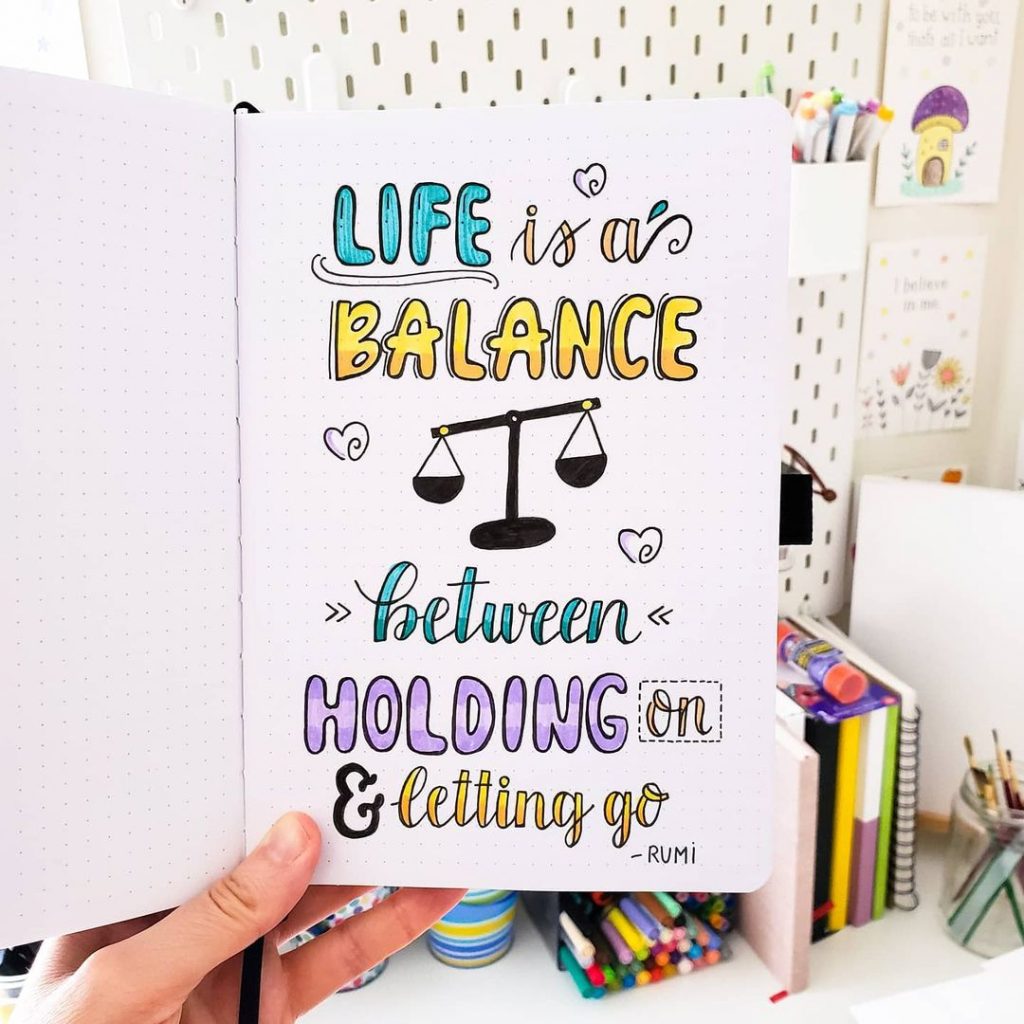 LIFE is a
BALANCE
between
HOLDING on
& letting go
-RUMi
to be with you,
thats all I want
I believe
in me.